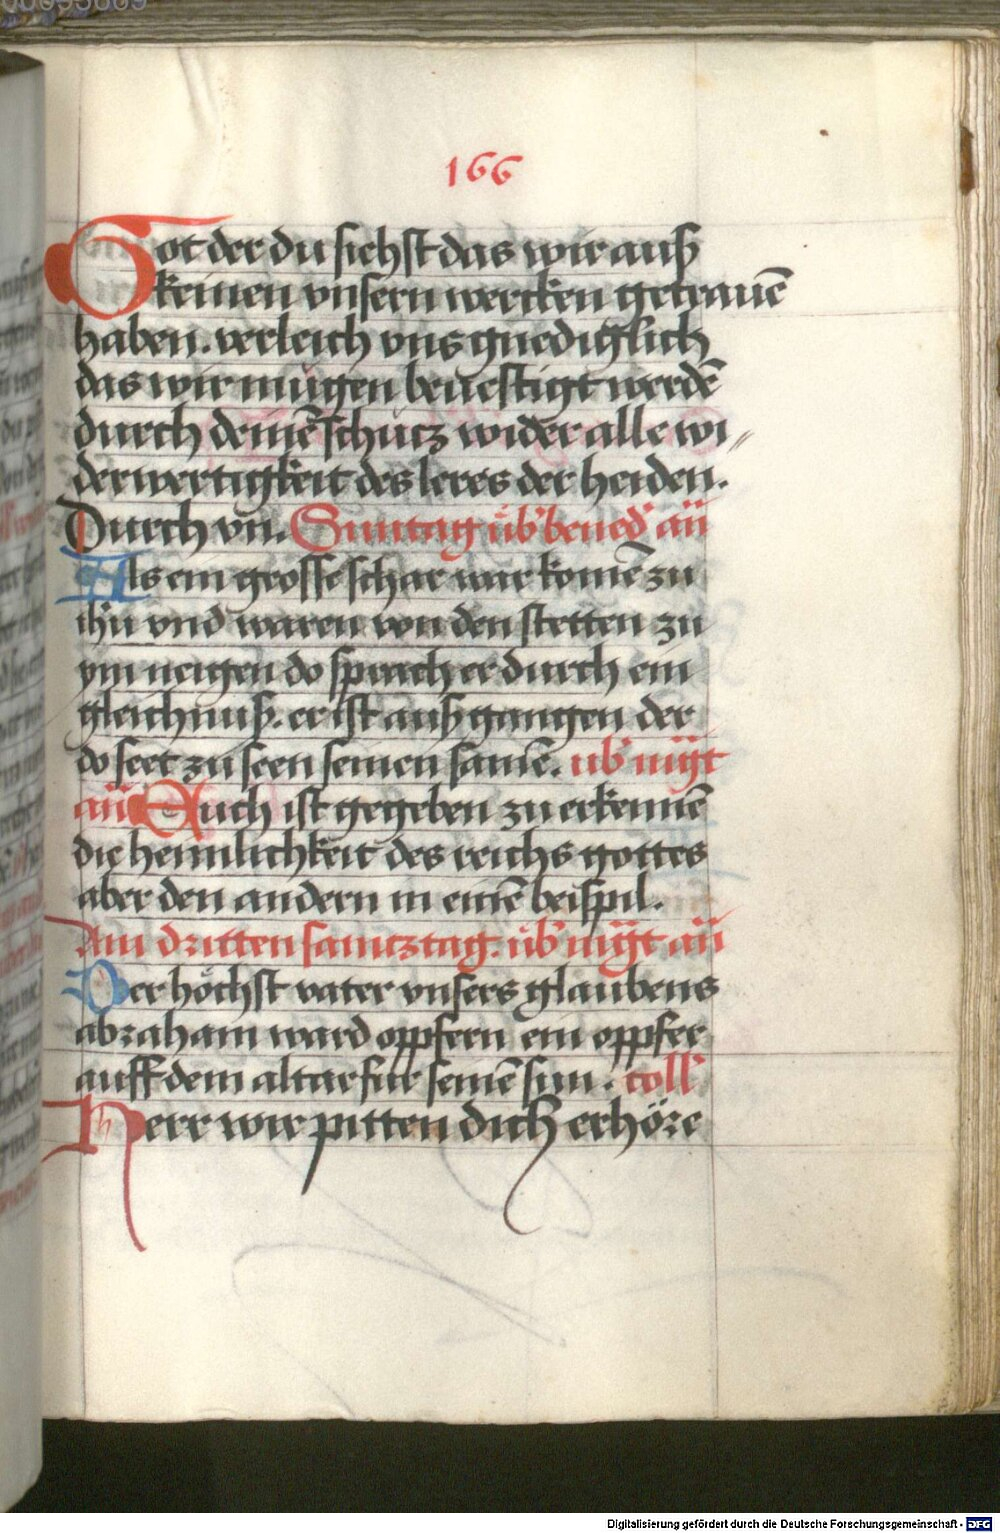 166
Got der du siehst das wir auß
keinen vnsern wercken getrauē
haben. verleich vns gnediglich
das wir mügen beuestigt werdē
durch deinē schutz wider alle wi⸗
derwertigkeit des leres der heiden.
Durch vn. Suntag üb' bened' añ
Als ein grosse schar war komē zu
ihū vnd waren von den stetten zu
ym neigen do sprach er durch ein
gleichnuß. er ist außgangen der
do seet zu seen seinen samē. üb' mgt
añ Euch ist gegeben zu erkennē
die heimlichkeit des reichs gottes
aber den andern in einē beispil.
Am dritten samcztag. üb' mgt añ
Der höchst vater vnsers glaubens
abraham ward oppfern ein oppfer
auff dem altar für seinē sun. coll'
Herr wir pitten dich erhöre
Digitalisierung gefördert durch die Deutsche Forschungsgemeinschaft - DFG